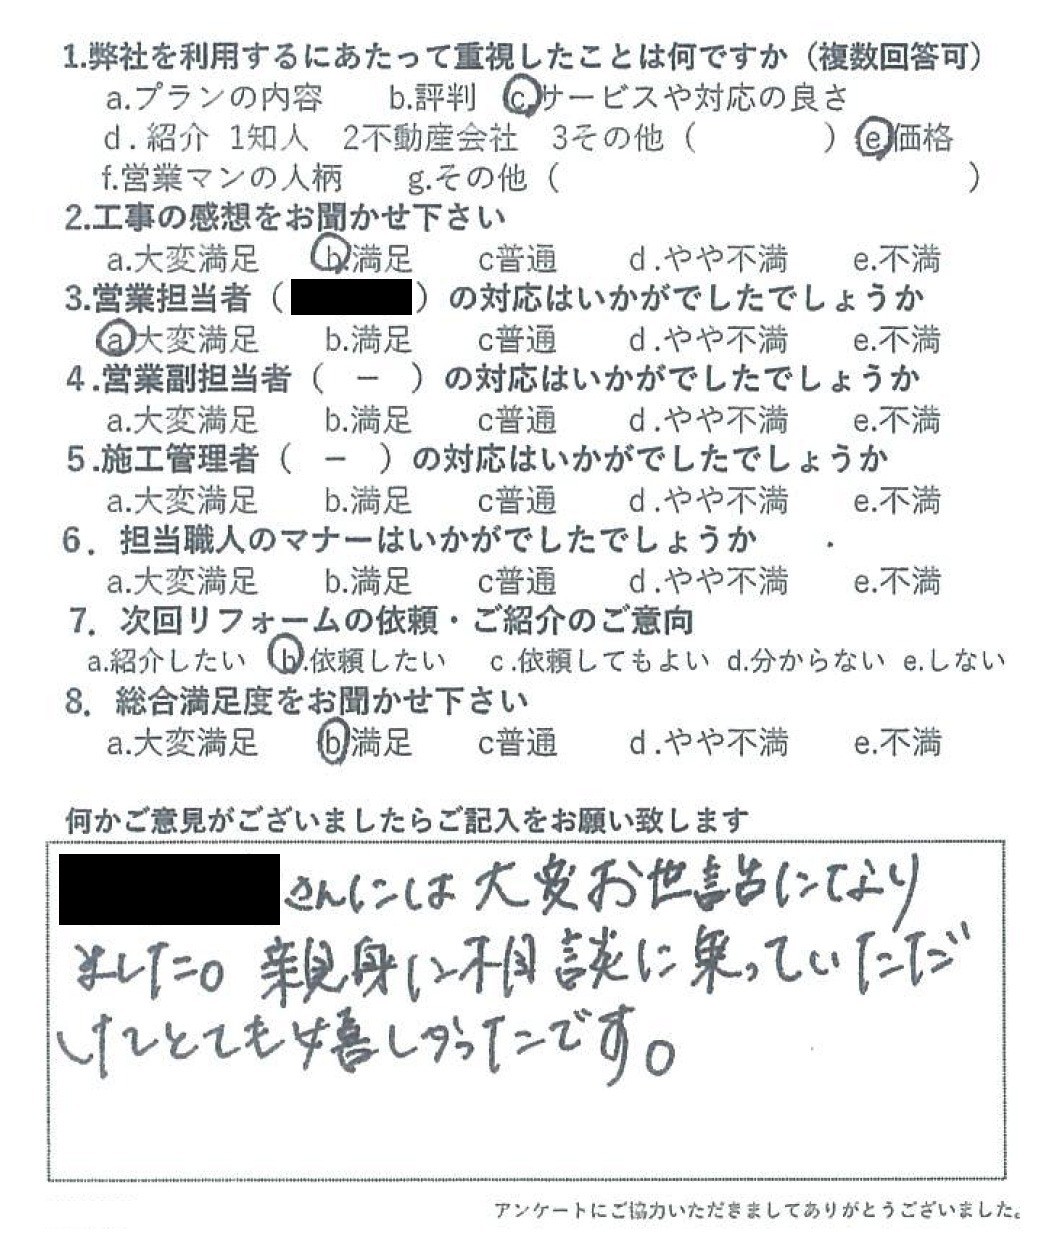 1.弊社を利用するにあたって重視したことは何ですか（複数回答可）
a.プランの内容 b.評判 c.サービスや対応の良さ
d.紹介 1知人 2不動産会社 3その他（ ）e.価格
f.営業マンの人柄 g.その他（ ）
2.工事の感想をお聞かせ下さい
a.大変満足 b.満足 c普通 d.やや不満 e.不満
3.営業担当者（ ）の対応はいかがでしたでしょうか
a.大変満足 b.満足 c普通 d.やや不満 e.不満
4.営業副担当者（ － ）の対応はいかがでしたでしょうか
a.大変満足 b.満足 c普通 d.やや不満 e.不満
5.施工管理者（ － ）の対応はいかがでしたでしょうか
a.大変満足 b.満足 c普通 d.やや不満 e.不満
6．担当職人のマナーはいかがでしたでしょうか
a.大変満足 b.満足 c普通 d.やや不満 e.不満
7．次回リフォームの依頼・ご紹介のご意向
a.紹介したい b.依頼したい c.依頼してもよい d.分からない e.しない
8．総合満足度をお聞かせ下さい
a.大変満足 b.満足 c普通 d.やや不満 e.不満
何かご意見がございましたらご記入をお願い致します
さんには大変お世話になり
ました。親身に相談に乗っていただ
けてとても嬉しかったです。
アンケートにご協力いただきましてありがとうございました。